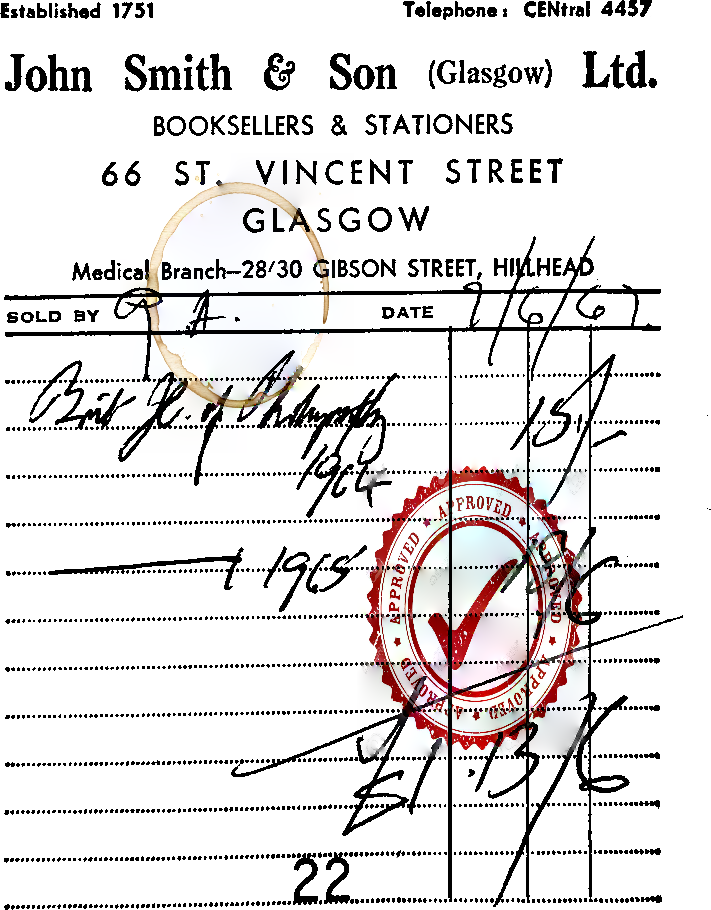 Established 1751 Telephone: CENtral 4457
John Smith & Son (Glasgow) Ltd.
BOOKSELLERS & STATIONERS
66 ST. VINCENT STREET
GLASGOW
Medical Branch—28/30 GIBSON STREET, HILLHEAD
SOLD BY A. DATE /6/67.
Brit Jl. of Photography 15/-
1964
1965
APPROVED APPROVED APPROVED APPROVED APPROVED APPROVED
£1.13/6
22